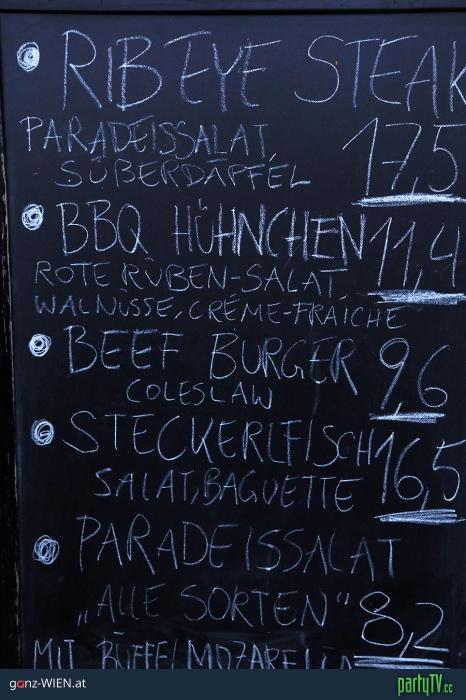 RIB EYE STEAK
PARADEISSALAT, 17,5
SÜßERDÄPFEL
BBQ HÜHNCHEN 11,4
ROTE RÜBEN-SALAT,
WALNÜSSE, CRÉME-FRAÎCHE
BEEF BURGER 9,6
COLESLAW
STECKERLFISCH 16,5
SALAT, BAGUETTE
PARADEISSALAT
„ALLE SORTEN“ 8,2
MIT BÜFFELMOZARELLA
ganz-WIEN.at
partyTV.cc